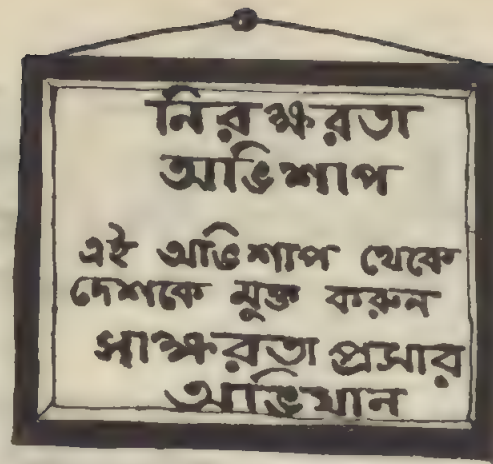 নিরক্ষরতা
অভিশাপ
এই অভিশাপ থেকে
দেশকে মুক্ত করুন
সাক্ষরতা প্রসার
অভিযান